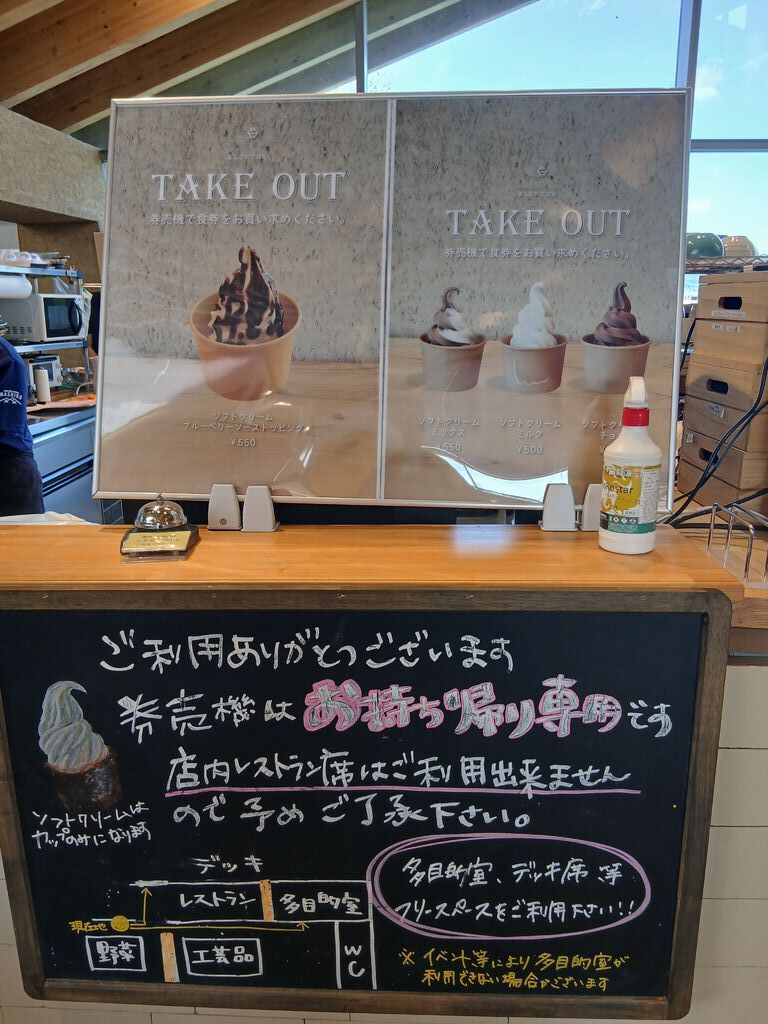 TAKE OUT
券売機で食券をお買い求めください。
ソフトクリーム
ブルーベリーソーストッピング
¥550
TAKE OUT
券売機で食券をお買い求めください。
ソフトクリーム
ミックス
¥550
ソフトクリーム
ミルク
¥500
ソフトク
チョ
ostar
ご利用ありがとうございます
券売機はお持ち帰り専用です
店内レストラン席はご利用出来ません
ので予めご了承下さい。
ソフトクリームは
カップのみになります
デッキ
レストラン
多目的室
現在地
野菜
工芸品
WC
多目的室、デッキ席 等
フリースペースをご利用下さい!!
※イベント等により多目的室が
利用できない場合がございます